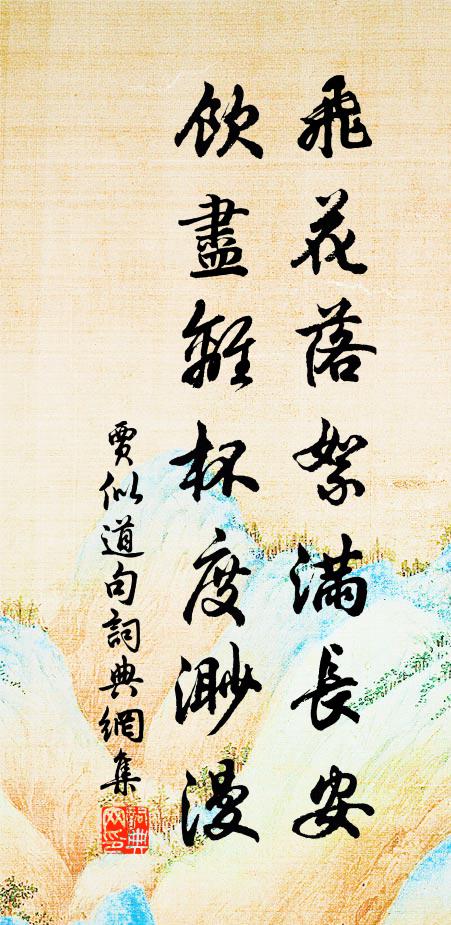 飛花落絮滿長安
飲盡離杯度渺漫
賈似道句詞典網集
詞典
网印